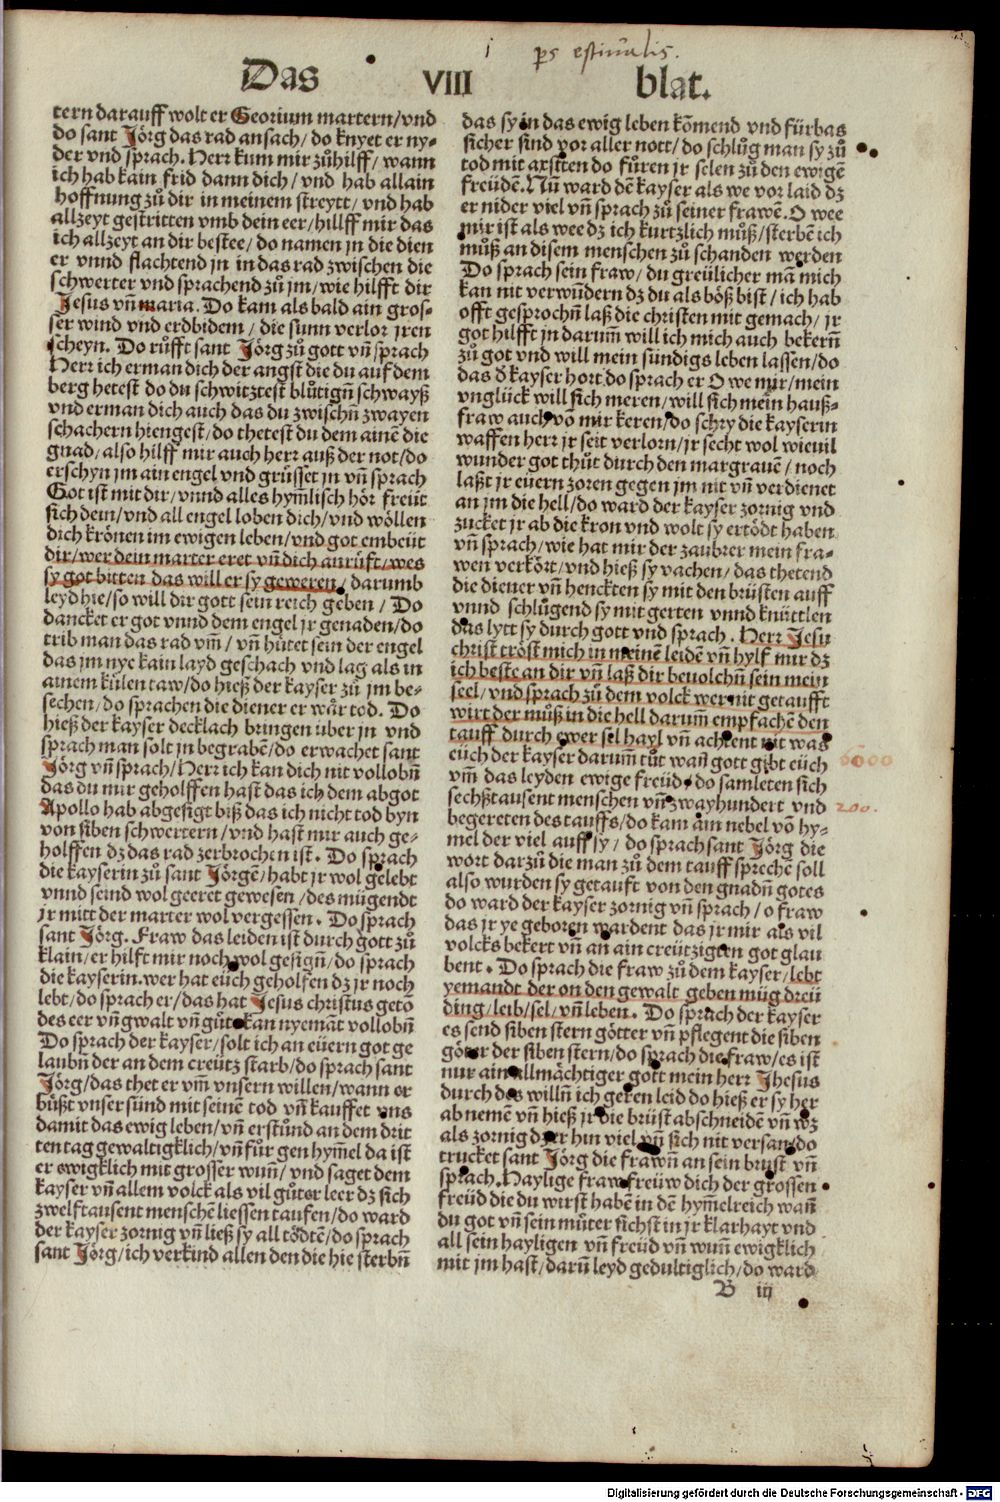 i ps estiualis.
Das VIII blat.
tern darauff wolt er Georium martern/vnd
do sant Jörg das rad ansach/do knyet er ny-
der vnd sprach. Herr kum mir zůhilff/wann
ich hab kain frid dann dich/vnd hab allain
hoffnung zů dir in meinem streytt/vnd hab
allzeyt gestritten vmb dein eer/hillff mir das
ich allzeyt an dir bestee/do namen jn die dien
er vnnd flachtend jn in das rad zwischen die
schwerter vnd sprachend zů jm/wie hilfft dir
Jesus vñ maria. Do kam als bald ain gros-
ser wind vnd erdbidem/die sunn verlor jren
scheyn. Do růfft sant Jörg zů gott vñ sprach
Herr ich erman dich der angst die du auf dem
berg hetest do du schwitztest blůtigñ schwayß
vnd erman dich auch das du zwischñ zwayen
schachern hiengest/do thetest du dem ainẽ die
gnad/also hilff mir auch herr auß der not/do
erschyn jm ain engel vnd grůsset jn vñ sprach
Got ist mit dir/vnnd alles hym̃lisch hör freüt
sich dein/vnd all engel loben dich/vnd wöllen
dich krönen im ewigen leben/vnd got embeüt
dir/wer dein marter eret vñ dich anrůft/wes
sy got bitten das will er sy geweren/darumb
leyd hie/so will dir gott sein reich geben/Do
dancket er got vnnd dem engel jr genaden/do
trib man das rad vm̃/vñ hütet sein der engel
das jm nye kain layd geschach vnd lag als in
ainem külen taw/do hieß der kayser zů jm be-
sechen/do sprachen die diener er wär tod. Do
hieß der kayser decklach bringen über jn vnd
sprach man solt jn begrabẽ/do erwachet sant
Jörg vñ sprach/Herr ich kan dich nit vollobñ
das du mir geholffen hast das ich dem abgot
Apollo hab abgesigt biß das ich nicht tod byn
von siben schwertern/vnd hast mir auch ge-
holffen dz das rad zerbrochen ist. Do sprach
die kayserin zů sant Jörgẽ/habt jr wol gelebt
vnnd seind wol geeret gewesen/des mügendt
jr mitt der marter wol vergessen. Do sprach
sant Jörg. Fraw das leiden ist durch gott zů
klain/er hilft mir noch wol gesigñ/do sprach
die kayserin. wer hat eüch geholfen dz jr noch
lebt/do sprach er/das hat Jesus christus getõ
des eer vñ gwalt vñ gůte kan nyemãt vollobñ
Do sprach der kayser/solt ich an eüern got ge
laubñ der an dem creütz starb/do sprach sant
Jörg/das thet er vm̃ vnsern willen/wann er
bůßt vnser sünd mit seinẽ tod vñ kauffet vns
damit das ewig leben/vñ erstůnd an dem drit
ten tag gewaltigklich/vñ fůr gen hym̃el da ist
er ewigklich mit grosser wuñ/vnd saget dem
kayser vñ allem volck als vil gůter leer dz sich
zwelftausent menschẽ liessen taufen/do ward
der kayser zornig vñ ließ sy all tödtẽ/do sprach
sant Jörg/ich verkünd allen den die hie sterbñ
das sy in das ewig leben kõmend vnd fürbas
sicher sind vor aller nott/do schlůg man sy zů
tod mit axstten do fůren jr selen zů den ewigẽ
freüdẽ. Nũ ward dẽ kayser als we vor laid dz
er nider viel vñ sprach zů seiner frawẽ. O wee
mir ist als wee dz ich kurtzlich můß/sterbẽ ich
můß an disem menschen zů schanden werden
Do sprach sein fraw/du greülicher mã mich
kan nit verwuñdern dz du als böß bist/ich hab
offt gesprochñ laß die christen mit gemach/jr
got hilfft jn darum̃ will ich mich auch bekerñ
zů got vnd will mein sundigs leben lassen/do
das d kayser hort do sprach er O we mir/mein
vnglück will sich meren/will sich mein hauß-
fraw auch võ mir keren/do schry die kayserin
waffen herr jr seit verlorn/jr secht wol wieuil
wunder got thůt durch den margrauẽ/noch
laßt jr eüern zoren gegen jm nit vñ verdienet
an jm die hell/do ward der kayser zornig vnd
zucket jr ab die kron vnd wolt sy ertödt haben
vñ sprach/wie hat mir der zaubrer mein fra-
wen verkört/vnd hieß sy vachen/das thetend
die diener vñ henckten sy mit den brüsten auff
vnnd schlůgend sy mit gerten vnnd knüttlen
das lytt sy durch gott vnd sprach. Herr Jesu
christ tröst mich in meinẽ leidẽ vñ hylf mir dz
ich beste an dir vñ laß dir beuolchñ sein mein
seel/vnd sprach zů dem volck wer nit getaufft
wirt der můß in die hell darum̃ empfachẽ den
tauff durch ewer sel hayl vñ achtent nit was
eüch der kayser darum̃ tůt wañ gott gibt eüch
vm̃ das leyden ewige freüd/do samleten sich
sechßtausent menschen vñ zwayhundert vnd
begereten des tauffs/do kam ain nebel võ hy-
mel der viel auff sy/do sprach sant Jörg die
wort darzů die man zů dem tauff sprechẽ soll
also wurden sy getauft von den gnadñ gotes
do ward der kayser zornig vñ sprach/o fraw
das jr ye geboren wardent das jr mir als vil
volcks bekert vñ an ain creützigten got glau
bent. Do sprach die fraw zů dem kayser/lebt
yemandt der on den gewalt geben müg dreü
ding/leib/sel/vñ leben. Do sprach der kayser
es send siben stern götter vñ pflegent die siben
götter der siben stern/do sprach die fraw/es ist
nur ain allmächtiger gott mein herr Jhesus
durch des willñ ich geren leid do hieß er sy her
ab nemẽ vñ hieß jr die brüst abschneidẽ vñ wz
als zornig dz er hin viel vñ sich nit versan/do
trucket sant Jörg die frawñ an sein brust vñ
sprach. Haylige fraw freüw dich der grossen
freüd die du wirst habẽ in dẽ hym̃elreich wañ
du got vñ sein můter sichst in jr klarhayt vnd
all sein hayligen vñ freüd vñ wuñ ewigklich
mit jm hast/darũ leyd gedultiglich/do ward
B iij
6000
200.
Digitalisierung gefördert durch die Deutsche Forschungsgemeinschaft - DFG